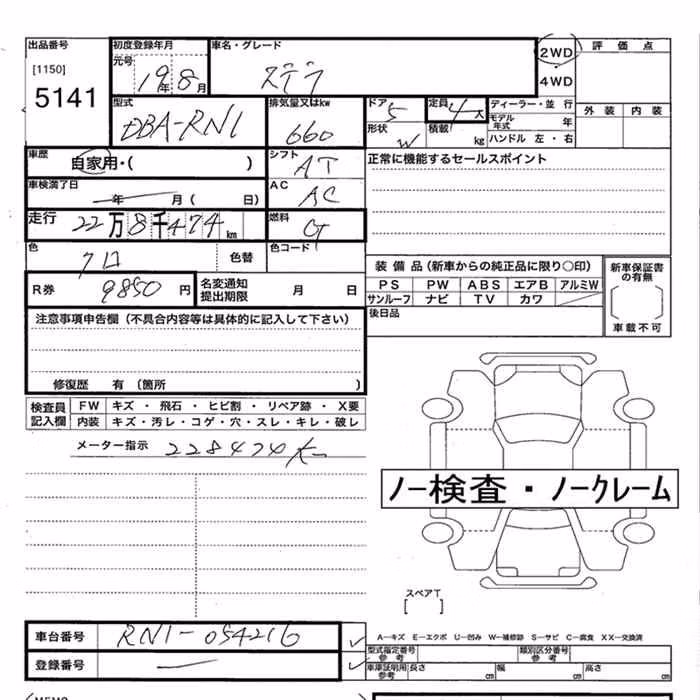 出品番号
[1150]
5141
初度登録年月
元号
19年8月
車名・グレード
ステラ
2WD
4WD
評価点
外装 内装
型式
DBA-RN1
排気量又はkw
660
ドア
5
形状
W
定員
4人
積載 kg
ディーラー・並行
モデル年式 年
ハンドル 左・右
車歴
自家用・( )
シフト
AT
正常に機能するセールスポイント
車検満了日
年 月 ( 日)
AC
AC
走行
22万8千474km
燃料
G
色
クロ
色替
色コード
R券
9850円
名変通知
提出期限
月 日
装備品(新車からの純正品に限り○印)
PS PW ABS エアB アルミW
サンルーフ ナビ TV カワ
後日品
新車保証書
の有無
車載不可
注意事項申告欄(不具合内容等は具体的に記入して下さい)
修復歴 有〔箇所 〕
検査員
記入欄
FW キズ・飛石・ヒビ割・リペア跡・X要
内装 キズ・汚レ・コゲ・穴・スレ・キレ・破レ
メーター指示
228474K
ノー検査・ノークレーム
スペアT
[ ]
車台番号
RN1-054216
登録番号
A―キズ E―エクボ U―凹み W―補修跡 S―サビ C―腐食 XX―交換済
型式指定番号
参考
類別区分番号
参考
車庫証明用
参考
長さ cm 幅 cm 高さ cm